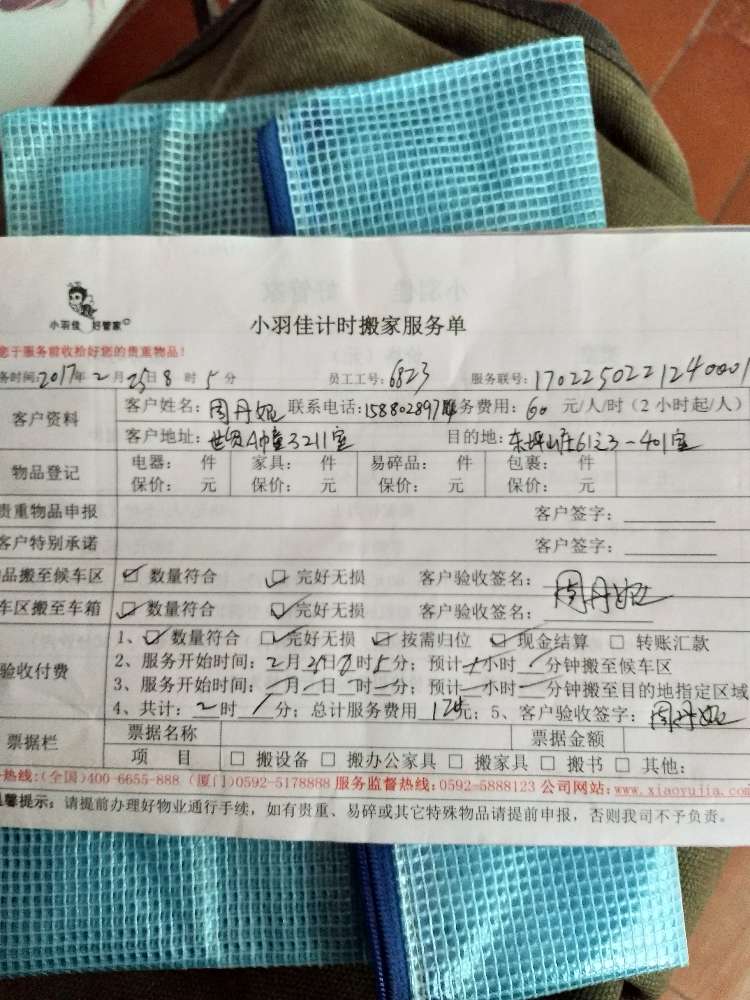 小羽佳 好管家
小羽佳计时搬家服务单
您于服务前收拾好您的贵重物品！
务时间:2017年2月25日8时5分 员工工号:6823 服务联号:1702250221240001
客户资料
客户姓名:周丹妮 联系电话:158802897 服务费用:60元/人/时（2小时起/人）
客户地址:世贸A幢3211室 目的地:东坪山庄61之3-401室
物品登记
电器: 件 家具: 件 易碎品: 件 包裹: 件
保价: 元 保价: 元 保价: 元 保价: 元
贵重物品申报 客户签字:
客户特别承诺 客户签字:
品搬至候车区 ☑数量符合 ☑完好无损 客户验收签名: 周丹妮
车区搬至车箱 ☑数量符合 ☑完好无损 客户验收签名:
验收付费
1、☑数量符合 ☑完好无损 ☑按需归位 ☑现金结算 □转账汇款
2、服务开始时间:2月25日8时5分；预计 小时 分钟搬至候车区
3、服务开始时间: 月 日 时 分；预计 小时 分钟搬至目的地指定区域
4、共计:2时 分；总计服务费用 元；5、客户验收签字:周丹妮
票据栏
票据名称 票据金额
项 目 □搬设备 □搬办公家具 □搬家具 □搬书 □其他:
热线:(全国)400-6655-888 (厦门)0592-5178888 服务监督热线:0592-5888123 公司网站:www.xiaoyujia.com
温馨提示: 请提前办理好物业通行手续，如有贵重、易碎或其它特殊物品请提前申报，否则我司不予负责。